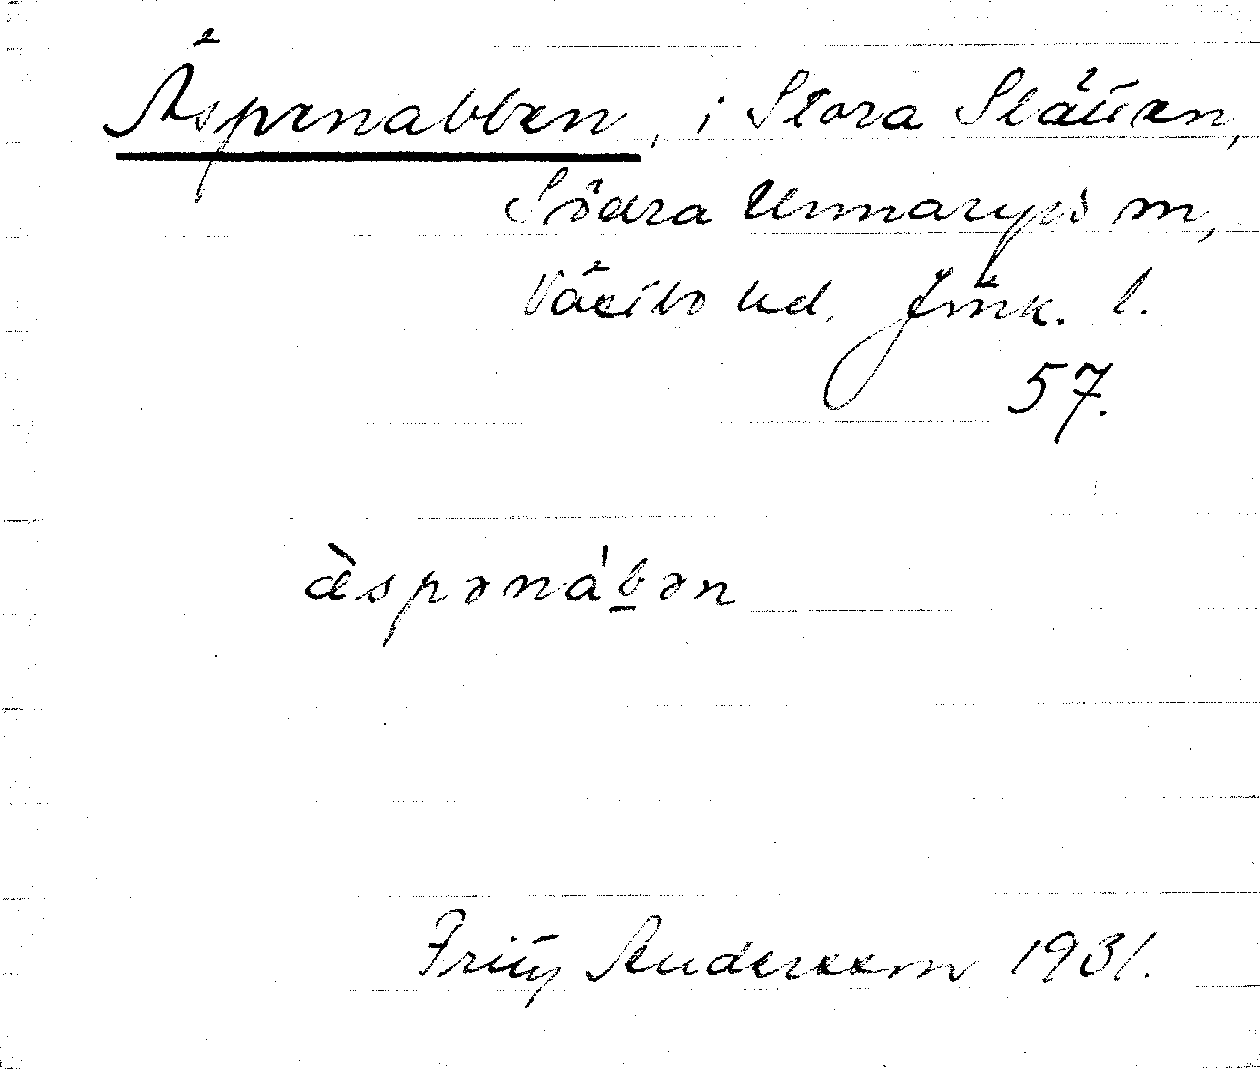 Äspenabben, i Stora Slätten,
Södra Unnaryds sn,
Västbo hd. Jönk. l.
57.
ä̀spənáb̲ən
Fritz Andersson 1931.